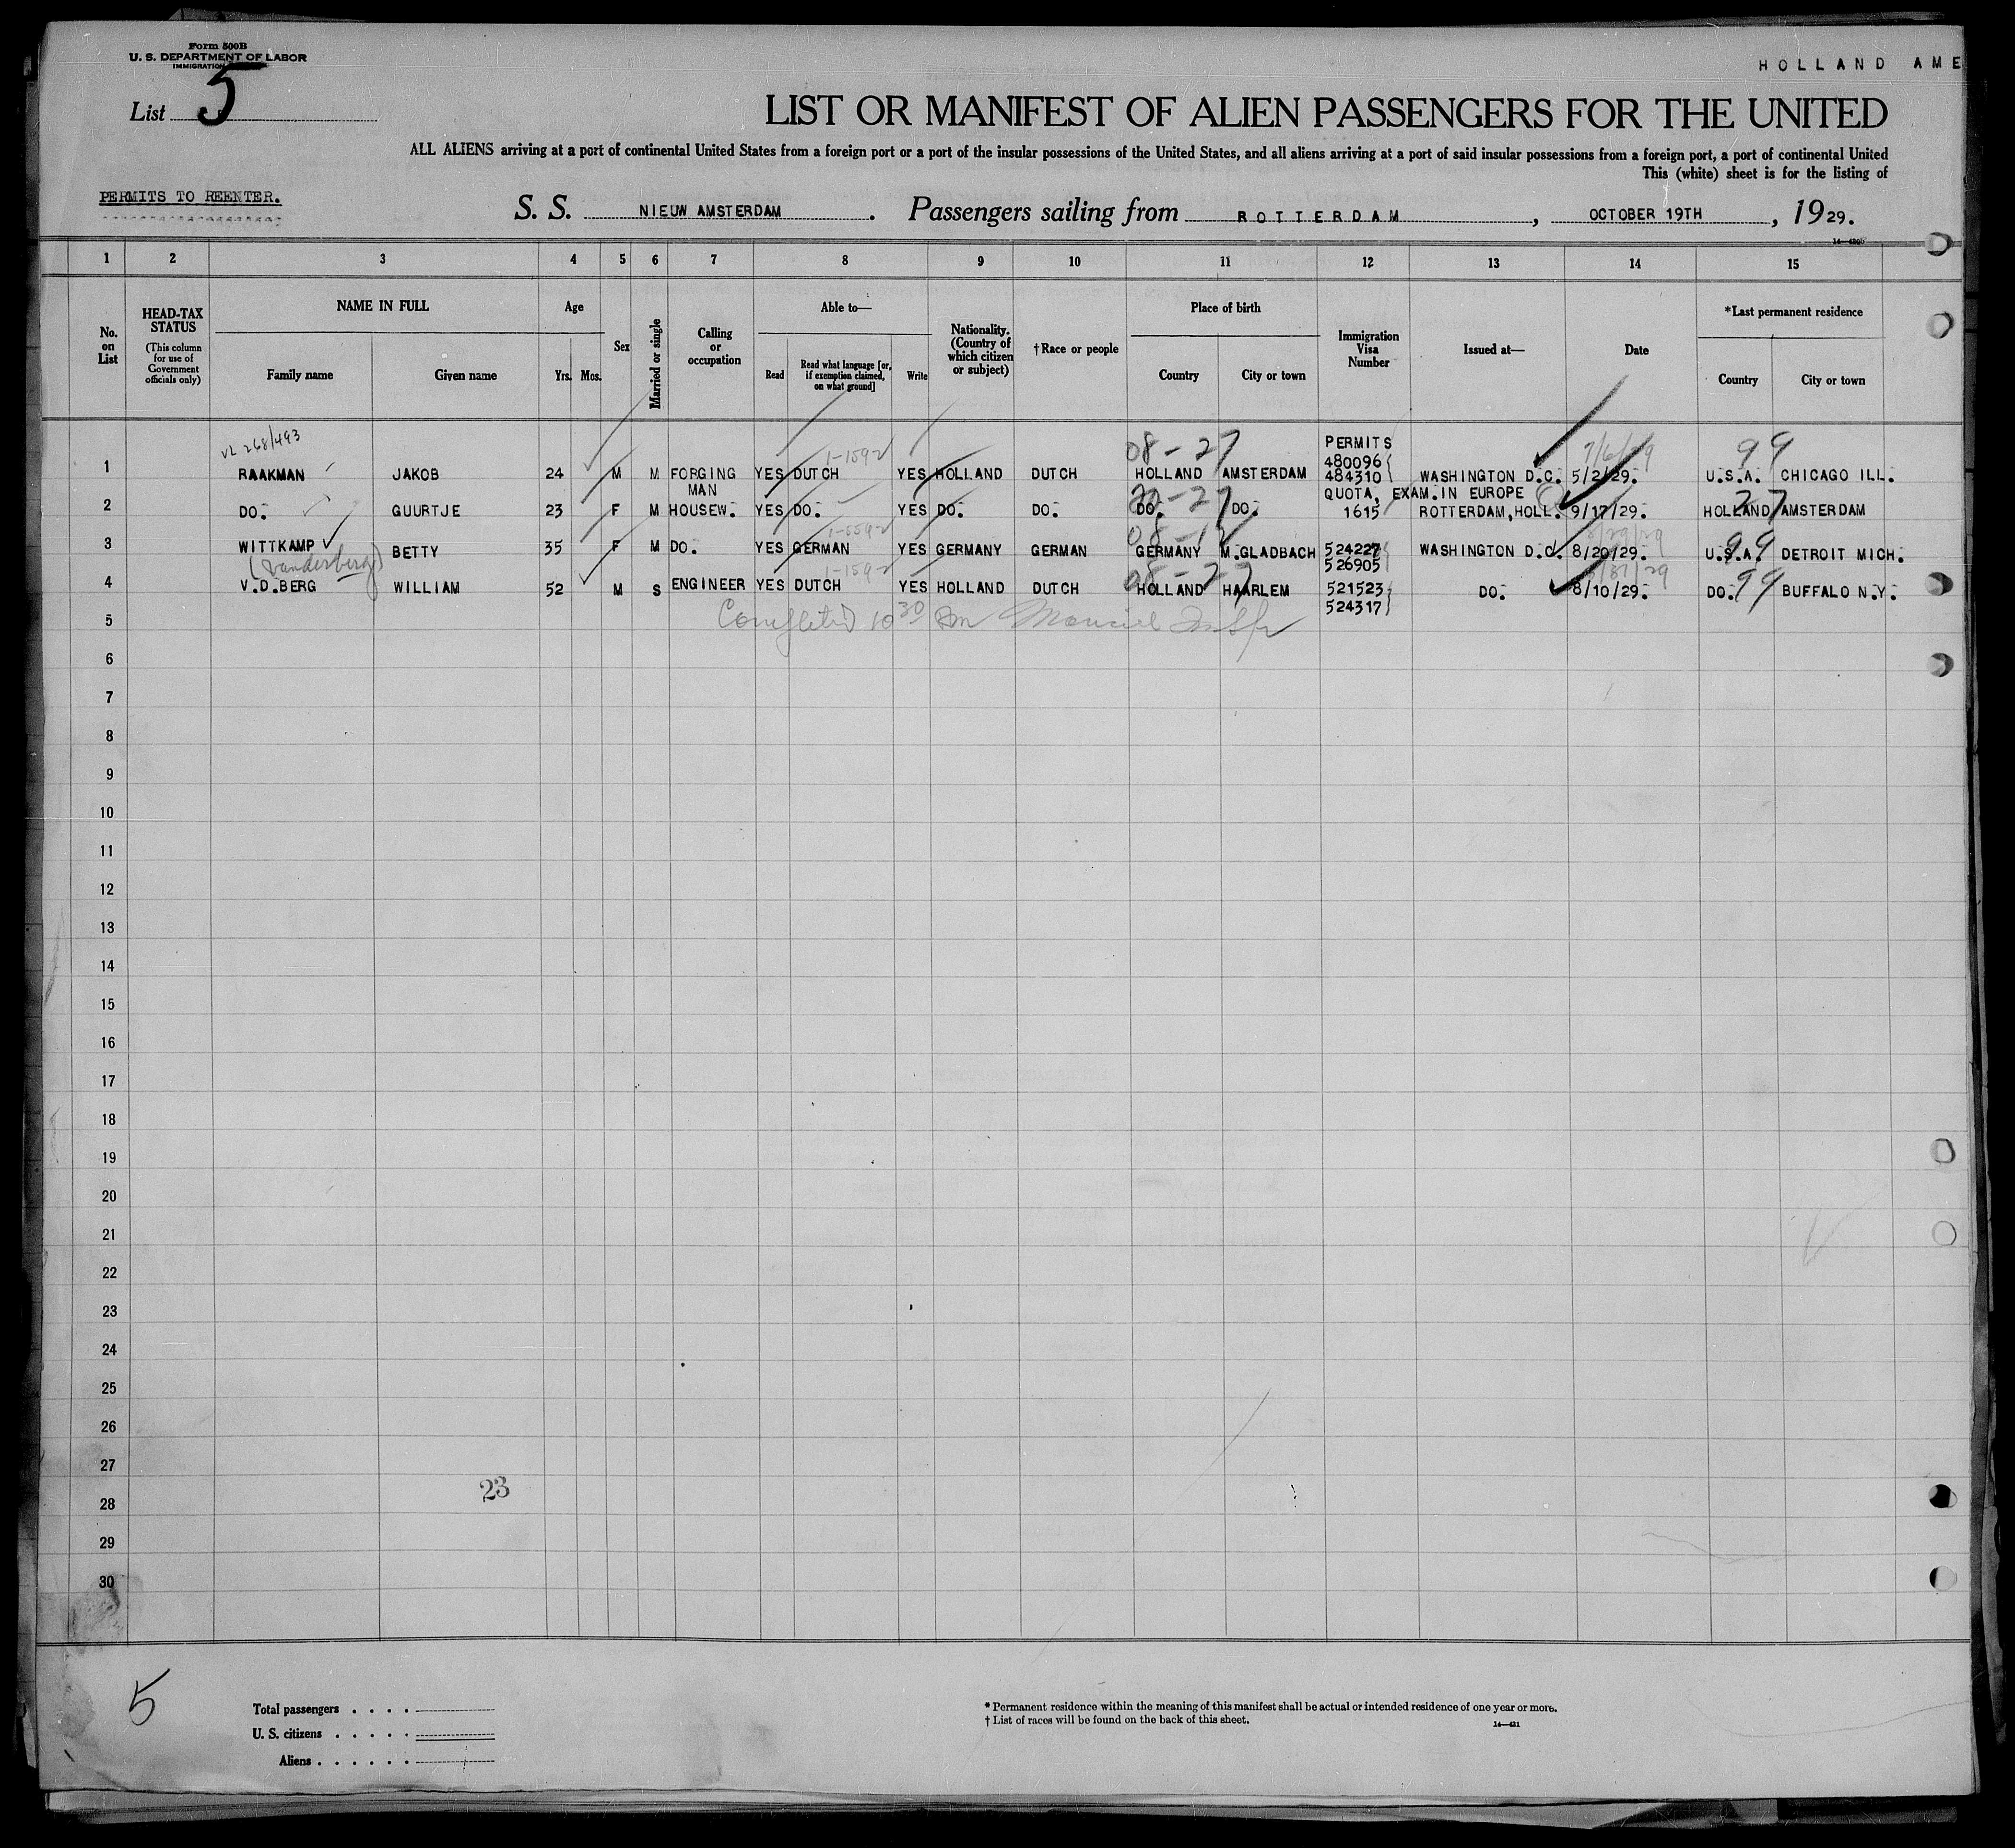 Form 500B
U. S. DEPARTMENT OF LABOR
IMMIGRATION
HOLLAND AME
List 5
LIST OR MANIFEST OF ALIEN PASSENGERS FOR THE UNITED
ALL ALIENS arriving at a port of continental United States from a foreign port or a port of the insular possessions of the United States, and all aliens arriving at a port of said insular possessions from a foreign port, a port of continental United
This (white) sheet is for the listing of
PERMITS TO REENTER.
S. S. NIEUW AMSTERDAM. Passengers sailing from ROTTERDAM, OCTOBER 19TH, 1929.
14—430b
1 2 3 4 5 6 7 8 9 10 11 12 13 14 15
No. on List
HEAD-TAX STATUS (This column for use of Government officials only)
NAME IN FULL
Family name Given name
Age
Yrs. Mos.
Sex
Married or single
Calling or occupation
Able to—
Read Read what language [or, if exemption claimed, on what ground] Write
Nationality. (Country of which citizen or subject)
†Race or people
Place of birth
Country City or town
Immigration Visa Number
Issued at—
Date
*Last permanent residence
Country City or town
VL 268/493 08-27 PERMITS 99
1-1592 480096
1 RAAKMAN JAKOB 24 M M FORGING MAN YES DUTCH YES HOLLAND DUTCH HOLLAND AMSTERDAM 484310 WASHINGTON D.C. 5/2/29. U.S.A. CHICAGO ILL.
QUOTA, EXAM. IN EUROPE
2 DO. GUURTJE 23 F M HOUSEW. YES DO. YES DO. DO. DO. DO. 1615 ROTTERDAM, HOLL. 9/17/29. HOLLAND AMSTERDAM
3 WITTKAMP BETTY 35 F M DO. YES GERMAN YES GERMANY GERMAN GERMANY M.GLADBACH 524227 WASHINGTON D.C. 8/20/29. U.S.A. DETROIT MICH.
(Vanderberg) 1-1592 526905
4 V.D.BERG WILLIAM 52 M S ENGINEER YES DUTCH YES HOLLAND DUTCH HOLLAND HAARLEM 521523 DO. 8/10/29. DO. 99 BUFFALO N.Y.
524317
5 Completed 10 30
6
7
8
9
10
11
12
13
14
15
16
17
18
19
20
21
22
23
24
25
26
27
23
28
29
30
5
Total passengers . . . .
U. S. citizens . . . . .
Aliens . . . . . .
* Permanent residence within the meaning of this manifest shall be actual or intended residence of one year or more.
† List of races will be found on the back of this sheet.
14—431